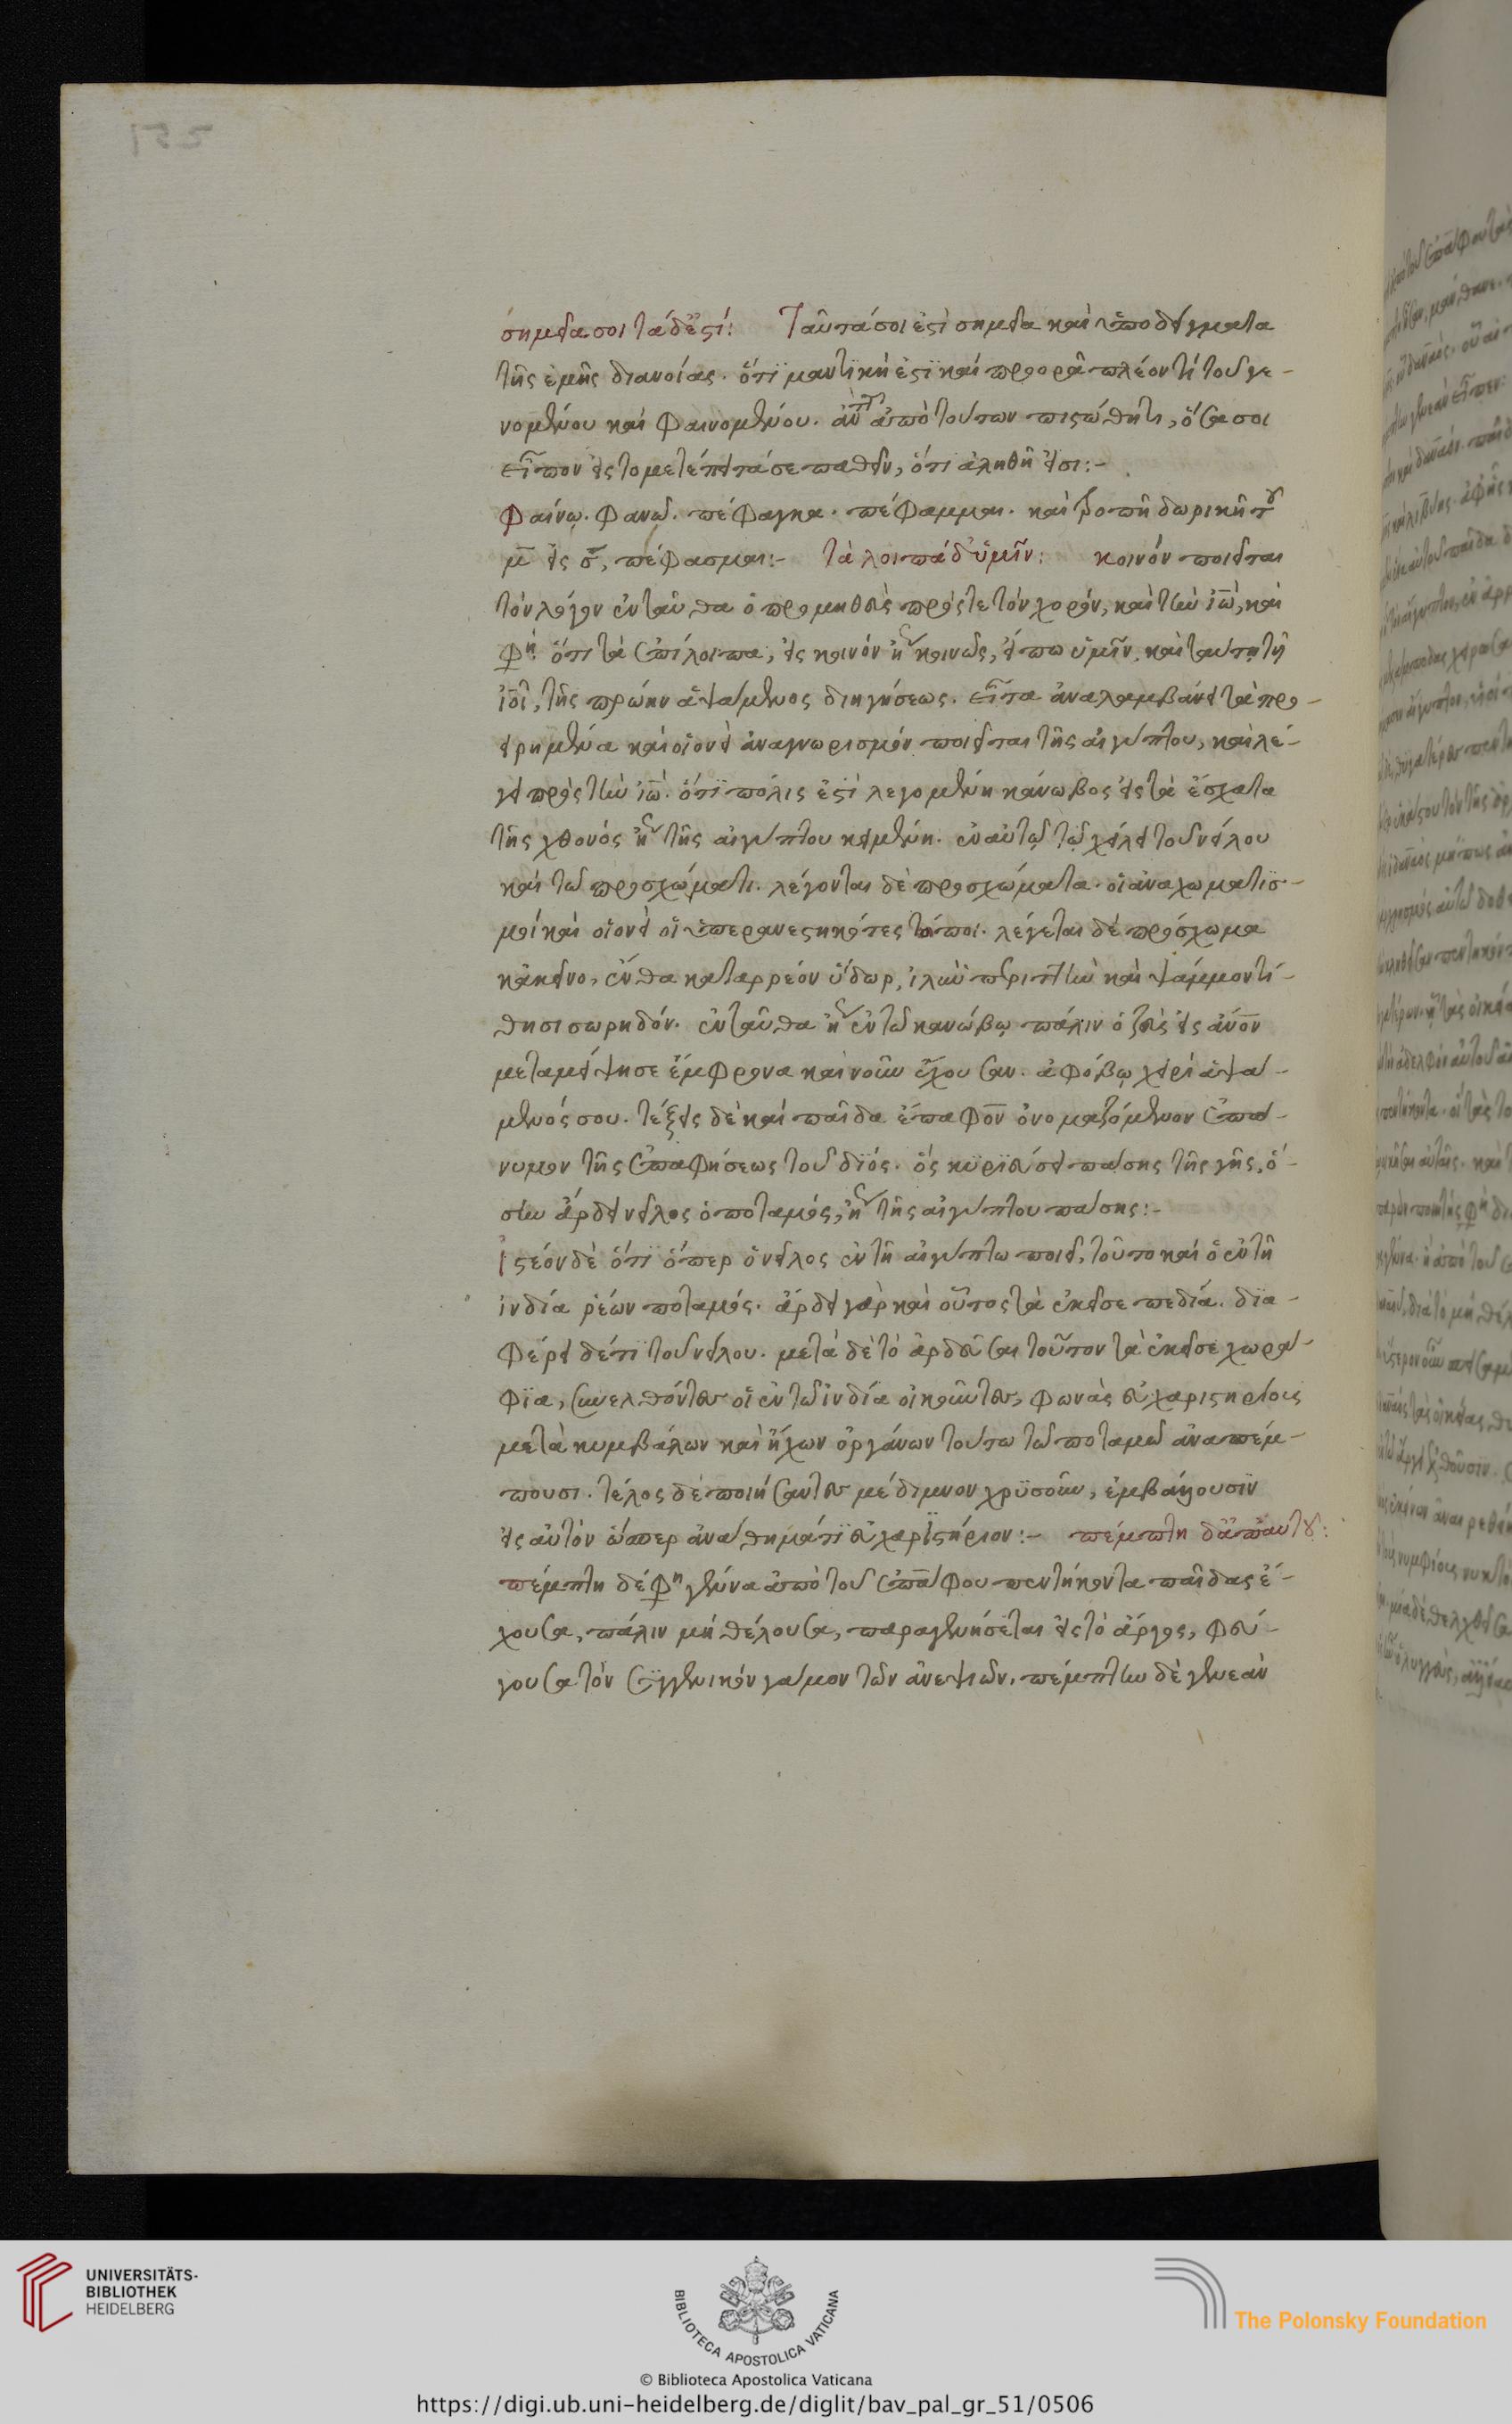 σημεῖά σοι τάδ' ἐστί: Ταῦτά σοι ἐστὶ σημεῖα καὶ ὑποδείγματα
τῆς ἐμῆς διανοίας. ὅτι μαντική ἐστι καὶ προορᾷ πλέον τί τοῦ γε-
νομένου καὶ φαινομένου. ἀπὸ τούτων πιστώθητι, ὅσα σοι
εἶπον εἰς τὸ μετέπειτά σε παθεῖν, ὅτι ἀληθῆ εἰσι:-
φαίνω. φανῶ. πέφαγκα. πέφαμμαι. καὶ τροπῇ δωρικῇ τοῦ
μ̅ εἰς σ̅, πέφασμαι:- τὰ λοιπὰ δ' ὑμῖν: κοινὸν ποιεῖται
τὸν λόγον ἐνταῦθα ὁ προμηθεὺς πρός τε τὸν χορόν, καὶ τὴν ἰὼ, καὶ
φη ὅτι τὰ ἐπίλοιπα, εἰς κοινὸν ἤγουν κοινῶς, εἴπω ὑμῖν, καὶ ταύτῃ τῇ
ἰοῖ, τῆς πρώην ἁψάμενος διηγήσεως. εἶτα ἀναλαμβάνει τὰ προ-
ειρημένα καὶ οἱονεὶ ἀναγνωρισμὸν ποιεῖται τῆς αἰγύπτου, καὶ λέ-
γει πρὸς τὴν ἰώ. ὅτι πόλις ἐστὶ λεγομένη κάνωβος εἰς τὰ ἔσχατα
τῆς χθονὸς ἤγουν τῆς αἰγύπτου κειμένη. ἐν αὐτῷ τῷ χείλει τοῦ νείλου
καὶ τῷ προσχώματι. λέγονται δὲ προσχώματα. οἱ ἀναχωματισ-
μοὶ καὶ οἱονεὶ οἱ ὑπερανεστηκότες τόποι. λέγεται δὲ πρόσχωμα
κἀκεῖνο, ἔνθα καταρρέον ὕδωρ, ἰλὺν περιττὴν καὶ ψάμμον τί-
θησι σωρηδόν. ἐνταῦθα ἤγουν ἐν τῷ κανώβῳ πάλιν ὁ ζεὺς εἰς ἄνον
μεταμείψησε ἔμφρονα καὶ νοῦν ἔχουσαν. ἀφόβῳ χειρὶ ἁψά-
μενός σου. τέξεις δὲ καὶ παῖδα ἔπαφον ὀνομαζόμενον ἐπώ-
νυμον τῆς ἐπαφήσεως τοῦ διός. ὃς κυριεύσει πάσης τῆς γῆς, ὅ-
σην ἄρδει νεῖλος ὁ ποταμός, ἤγουν τῆς αἰγύπτου πάσης:-
Ἰστέον δὲ ὅτι ὅπερ ὁ νεῖλος ἐν τῇ αἰγύπτω ποιεῖ, τοῦτο καὶ ὁ ἐν τῇ
ἰνδία ῥέων ποταμός. ἄρδει γὰρ καὶ οὗτος τὰ ἐκεῖσε πεδία. δια-
φέρει δέ τι τοῦ νείλου. μετὰ δὲ τὸ ἀρδεῦσαι τοῦτον τὰ ἐκεῖσε χωρά-
φια, συνελθόντες οἱ ἐν τῶ ἰνδία οἰκοῦντες, φωνὰς εὐχαριστηρίοις
μετὰ κυμβάλων καὶ ἤχων ὀργάνων τούτω τῶ ποταμῶ ἀναπέμ-
πουσι. τέλος δὲ ποιήσαντες μέδιμνον χρυσοῦν, ἐμβάλλουσιν
εἰς αὐτὸν ὥσπερ ἀναθημάτι εὐχαριστήριον:- πέμπτη δ' ἀπ' αυτοῦ:
πέμπτη δέ φη γέννα ἀπὸ τοῦ ἐπάφου πεντήκοντα παῖδας ἔ-
χουσα, πάλιν μὴ θέλουσα, παραγενήσεται εἰς τὸ ἄργος, φεύ-
γουσα τὸν συγγενικὸν γάμον τῶν ἀνεψιῶν. πέμπτην δὲ γενεὰν
UNIVERSITÄTS-
BIBLIOTHEK
HEIDELBERG
BIBLIOTECA APOSTOLICA VATICANA
The Polonsky Foundation
© Biblioteca Apostolica Vaticana
https://digi.ub.uni-heidelberg.de/diglit/bav_pal_gr_51/0506